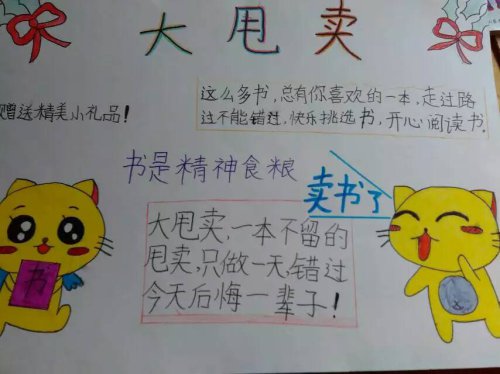 大甩卖
赠送精美小礼品!
这么多书,总有你喜欢的一本,走过路
过不能错过,快乐挑选书,开心阅读书.
书是精神食粮
卖书了
大甩卖,一本不留的
甩卖,只做一天,错过
今天后悔一辈子!
书